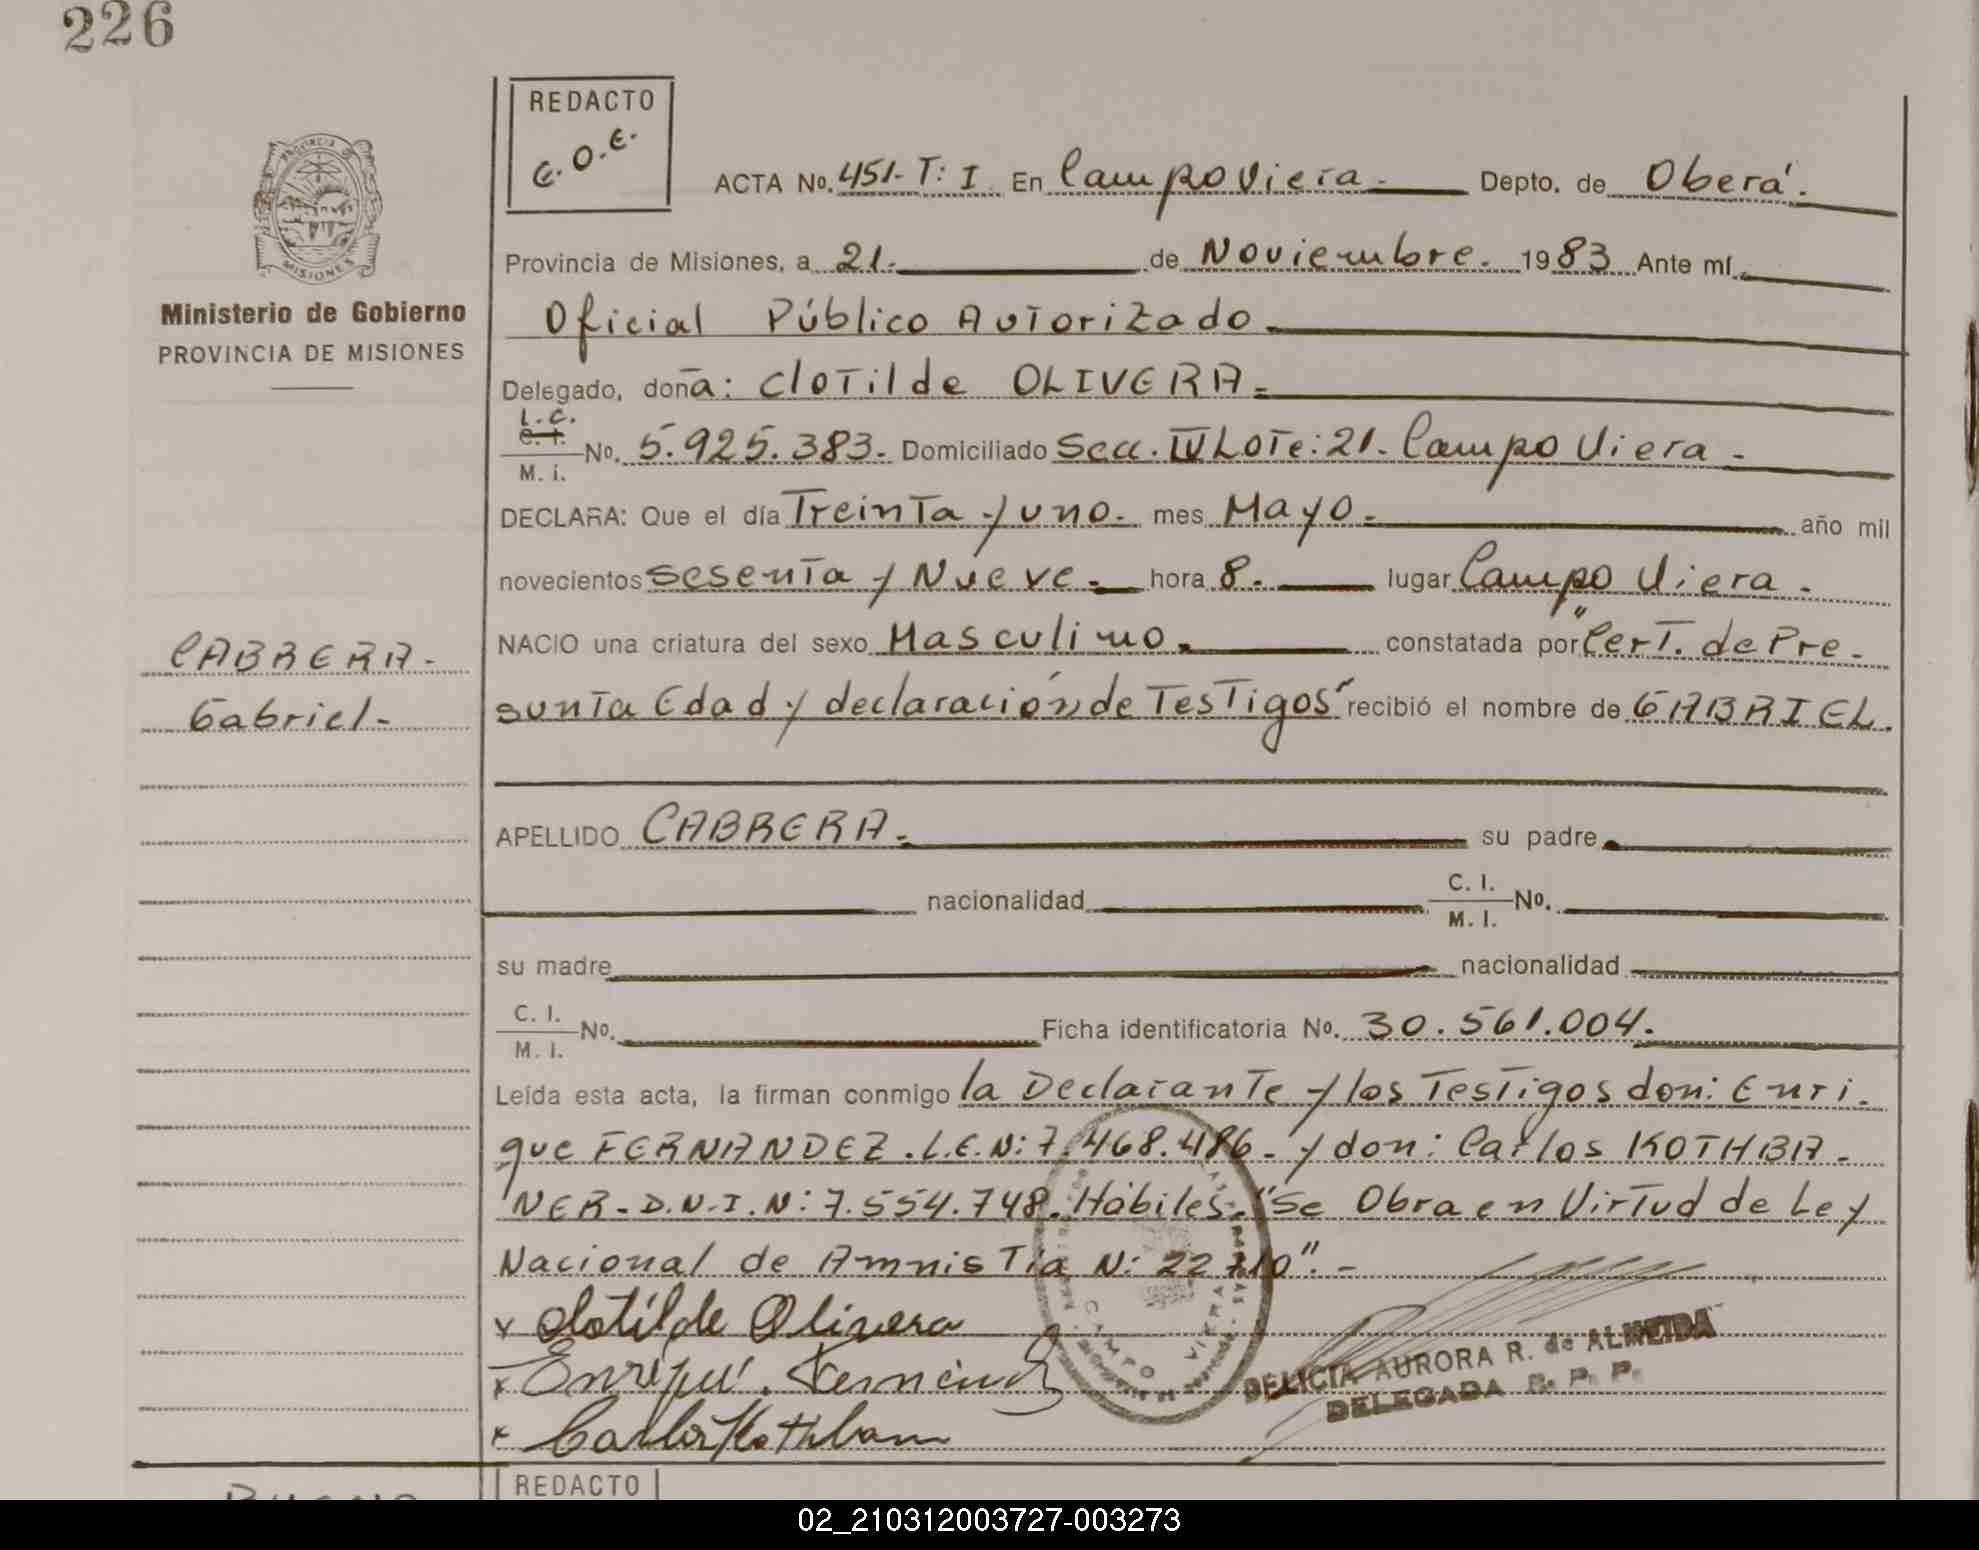 226
REDACTO
C.O.E.
PROVINCIA
MISIONES
Ministerio de Gobierno
PROVINCIA DE MISIONES
ACTA No. 451- T: I En Campo Viera.- Depto. de Oberá.
Provincia de Misiones, a 21. de Noviembre. 1983 Ante mí
Oficial Público Autorizado
Delegado, doña: Clotilde OLIVERA.
L.C.
C. I.
M. i.
No. 5.925.383. Domiciliado Secc. IV Lote: 21. Campo Viera -
DECLARA: Que el día Treinta y uno. mes Mayo. año mil
novecientos sesenta y Nueve. hora 8. lugar Campo Viera.
CABRERA.-
Gabriel.-
NACIO una criatura del sexo Masculino. constatada por "Cert. de Pre-
sunta Edad y declaración de Testigos" recibió el nombre de GABRIEL.
APELLIDO CABRERA. su padre
nacionalidad C. I.
M. I. No.
su madre nacionalidad
C. I.
M. I. No. Ficha identificatoria No. 30.561.004.
Leída esta acta, la firman conmigo la Declarante y los Testigos don: Enri-
que FERNANDEZ. L.E. N: 7.468.486.- y don: Carlos KOTHBA-
NER- D.N.I. N: 7.554.748. Hábiles. "Se Obra en Virtud de Ley
Nacional de Amnistía N: 22710".-
x Clotilde Olivera
x Enrique Fernandez
x Carlos Kothban
CAMPO VIERA
DELICIA AURORA R. de ALMEIDA
DELEGADA R. P. P.
REDACTO
02_210312003727-003273